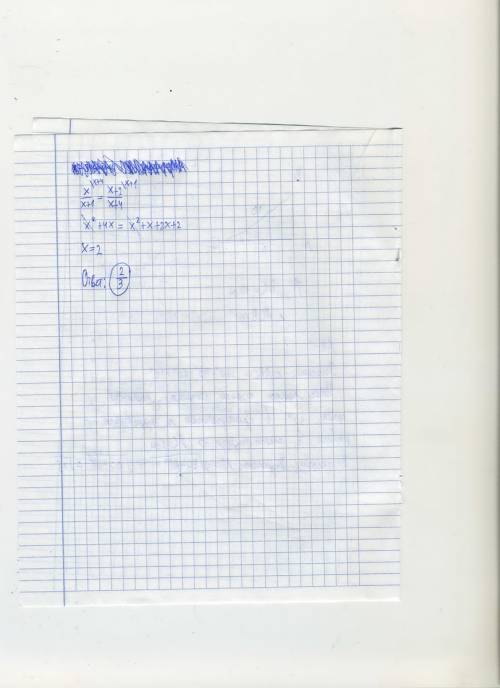 x/x+1 |x+4 = x+2/x+4 |x+1
x²+4x = x²+x+2x+2
x=2
Ответ: 2/3